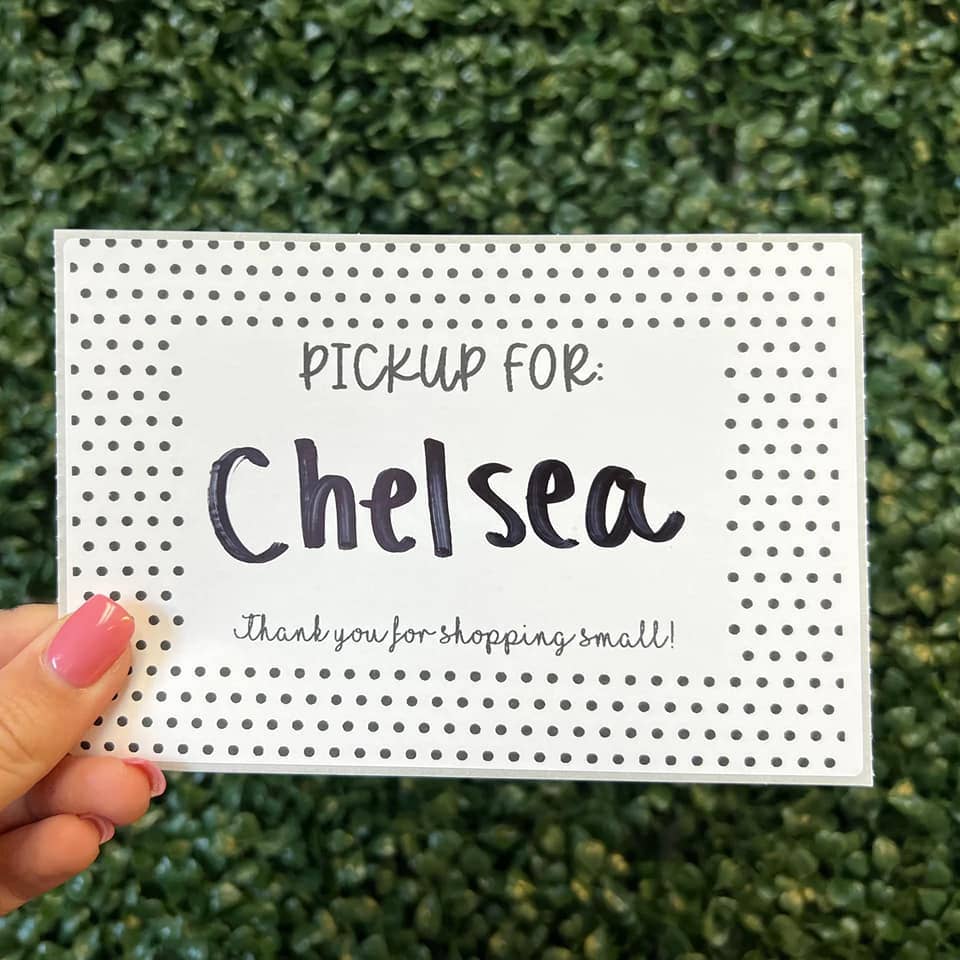 PICKUP FOR:
Chelsea
thank you for shopping small!